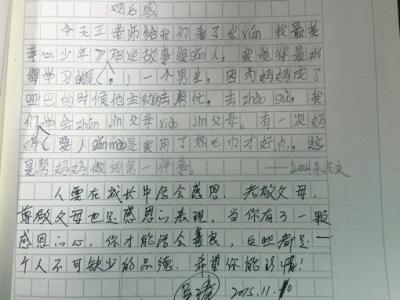 观后感
今天王老师给我们看了《xún 找最美
孝心少年》那些故事很gǎn人。我觉得最
得学习的是(。)一个男生,因为妈妈成了
的时候他主动去帮忙。去zhào gù。我
们学会zūn jìn父母xiào jìn父母。有一次妈
妈(要)gǎnmào是我用了热巾才好点。这
是帮妈妈做的第一件事。
人要在成长中学会感恩,孝敬父母,
尊敬父母也是感恩的表现,当你有了一颗
感恩的心,你才能学会善良,这些都是一
个人不可缺少的品德,希望你能珍惜!
2015.11.10